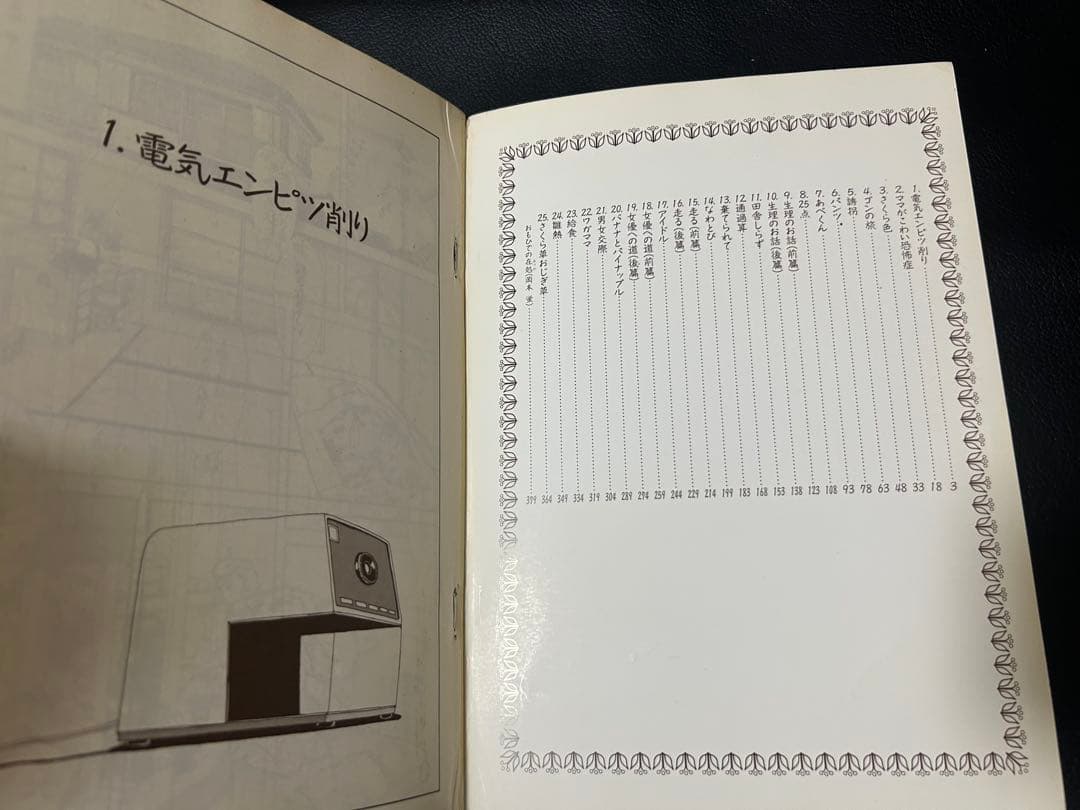 1. 電気エンピツ削り……3
2. ママがこわい恐怖症……18
3. さくら色……33
4. ゴンの旅……48
5. 誘拐……63
6. パンツ……78
7. あべくん……93
8. 25点……108
9. 生理のお話(前篇)……123
10. 生理のお話(後篇)……138
11. 田舎しらず……153
12. 通過算……168
13. 棄てられて……183
14. なわとび……199
15. 走る(前篇)……214
16. 走る(後篇)……229
17. アイドル……244
18. 女優への道(前篇)……259
19. 女優への道(後篇)……274
20. バナナとパイナップル……289
21. 男女交際……304
22. ワガママ……319
23. 給食……334
24. 雛熱……349
25. さくら草おじぎ草……364
おもひでの在処(岡本 螢)……379
1. 電気エンピツ削り